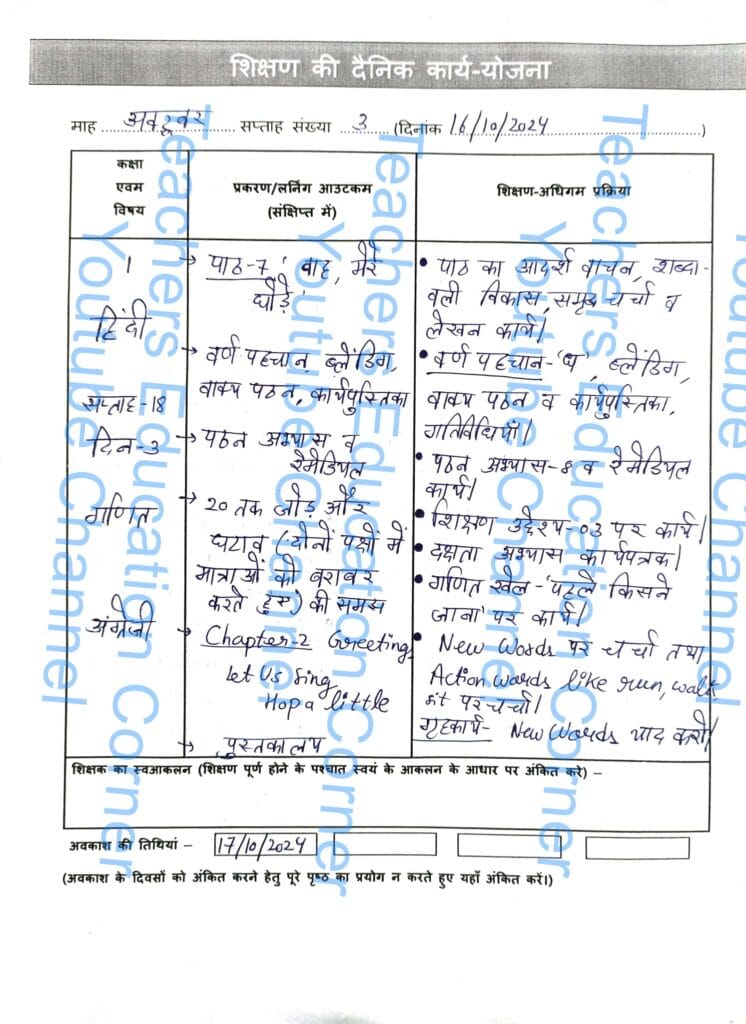 शिक्षण की दैनिक कार्य-योजना
माह ............अक्टूबर............ सप्ताह संख्या ....3.... (दिनांक 16/10/2024 ............)
कक्षा
एवम
विषय
प्रकरण/लर्निंग आउटकम
(संक्षिप्त में)
शिक्षण-अधिगम प्रक्रिया
1
हिंदी
सप्ताह-18
दिन-3
गणित
अंग्रेजी
→ पाठ-7 'वाह, मेरे
घोड़े'
→ वर्ण पहचान, ब्लेंडिंग,
वाक्य पठन, कार्यपुस्तिका
→ पठन अभ्यास व
रेमेडियल
→ 20 तक जोड़ और
घटाव (दोनों पक्षों में
मात्राओं को बराबर
करते हुए) की समझ
→ Chapter-2 Greetings
Let Us Sing
Hop a little
→ पुस्तकालय
• पाठ का आदर्श वाचन, शब्दा-
वली विकास, समृद्ध चर्चा व
लेखन कार्य।
• वर्ण पहचान-'घ', ब्लेंडिंग,
वाक्य पठन व कार्यपुस्तिका,
गतिविधियाँ।
• पठन अभ्यास-8 व रेमेडियल
कार्य।
• शिक्षण उद्देश्य-03 पर कार्य।
• दक्षता अभ्यास कार्यपत्रक।
• गणित खेल-'पहले किसने
जाना' पर कार्य।
• New Words पर चर्चा तथा
Action words like run, walk
sit पर चर्चा।
गृहकार्य- New Words याद करो।
शिक्षक का स्वआकलन (शिक्षण पूर्ण होने के पश्चात स्वयं के आकलन के आधार पर अंकित करे) –
अवकाश की तिथियां – 17/10/2024
(अवकाश के दिवसों को अंकित करने हेतु पूरे पृष्ठ का प्रयोग न करते हुए यहाँ अंकित करें।)
Teachers Education Corner
Youtube Channel
Teachers Education Corner
Youtube Channel
Teachers Education Corner
Youtube Channel